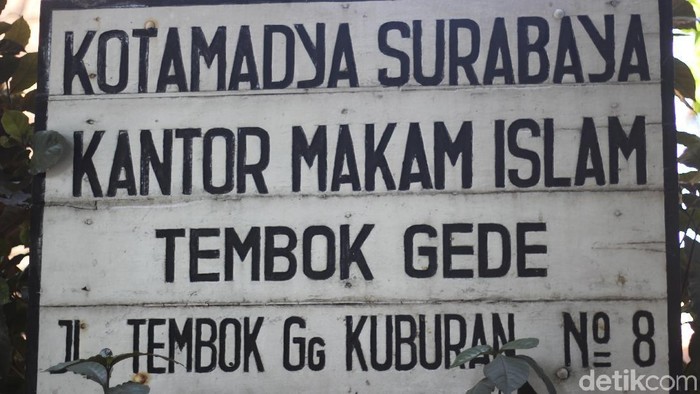 KOTAMADYA SURABAYA
KANTOR MAKAM ISLAM
TEMBOK GEDE
Jl. TEMBOK Gg KUBURAN No 8
detikcom